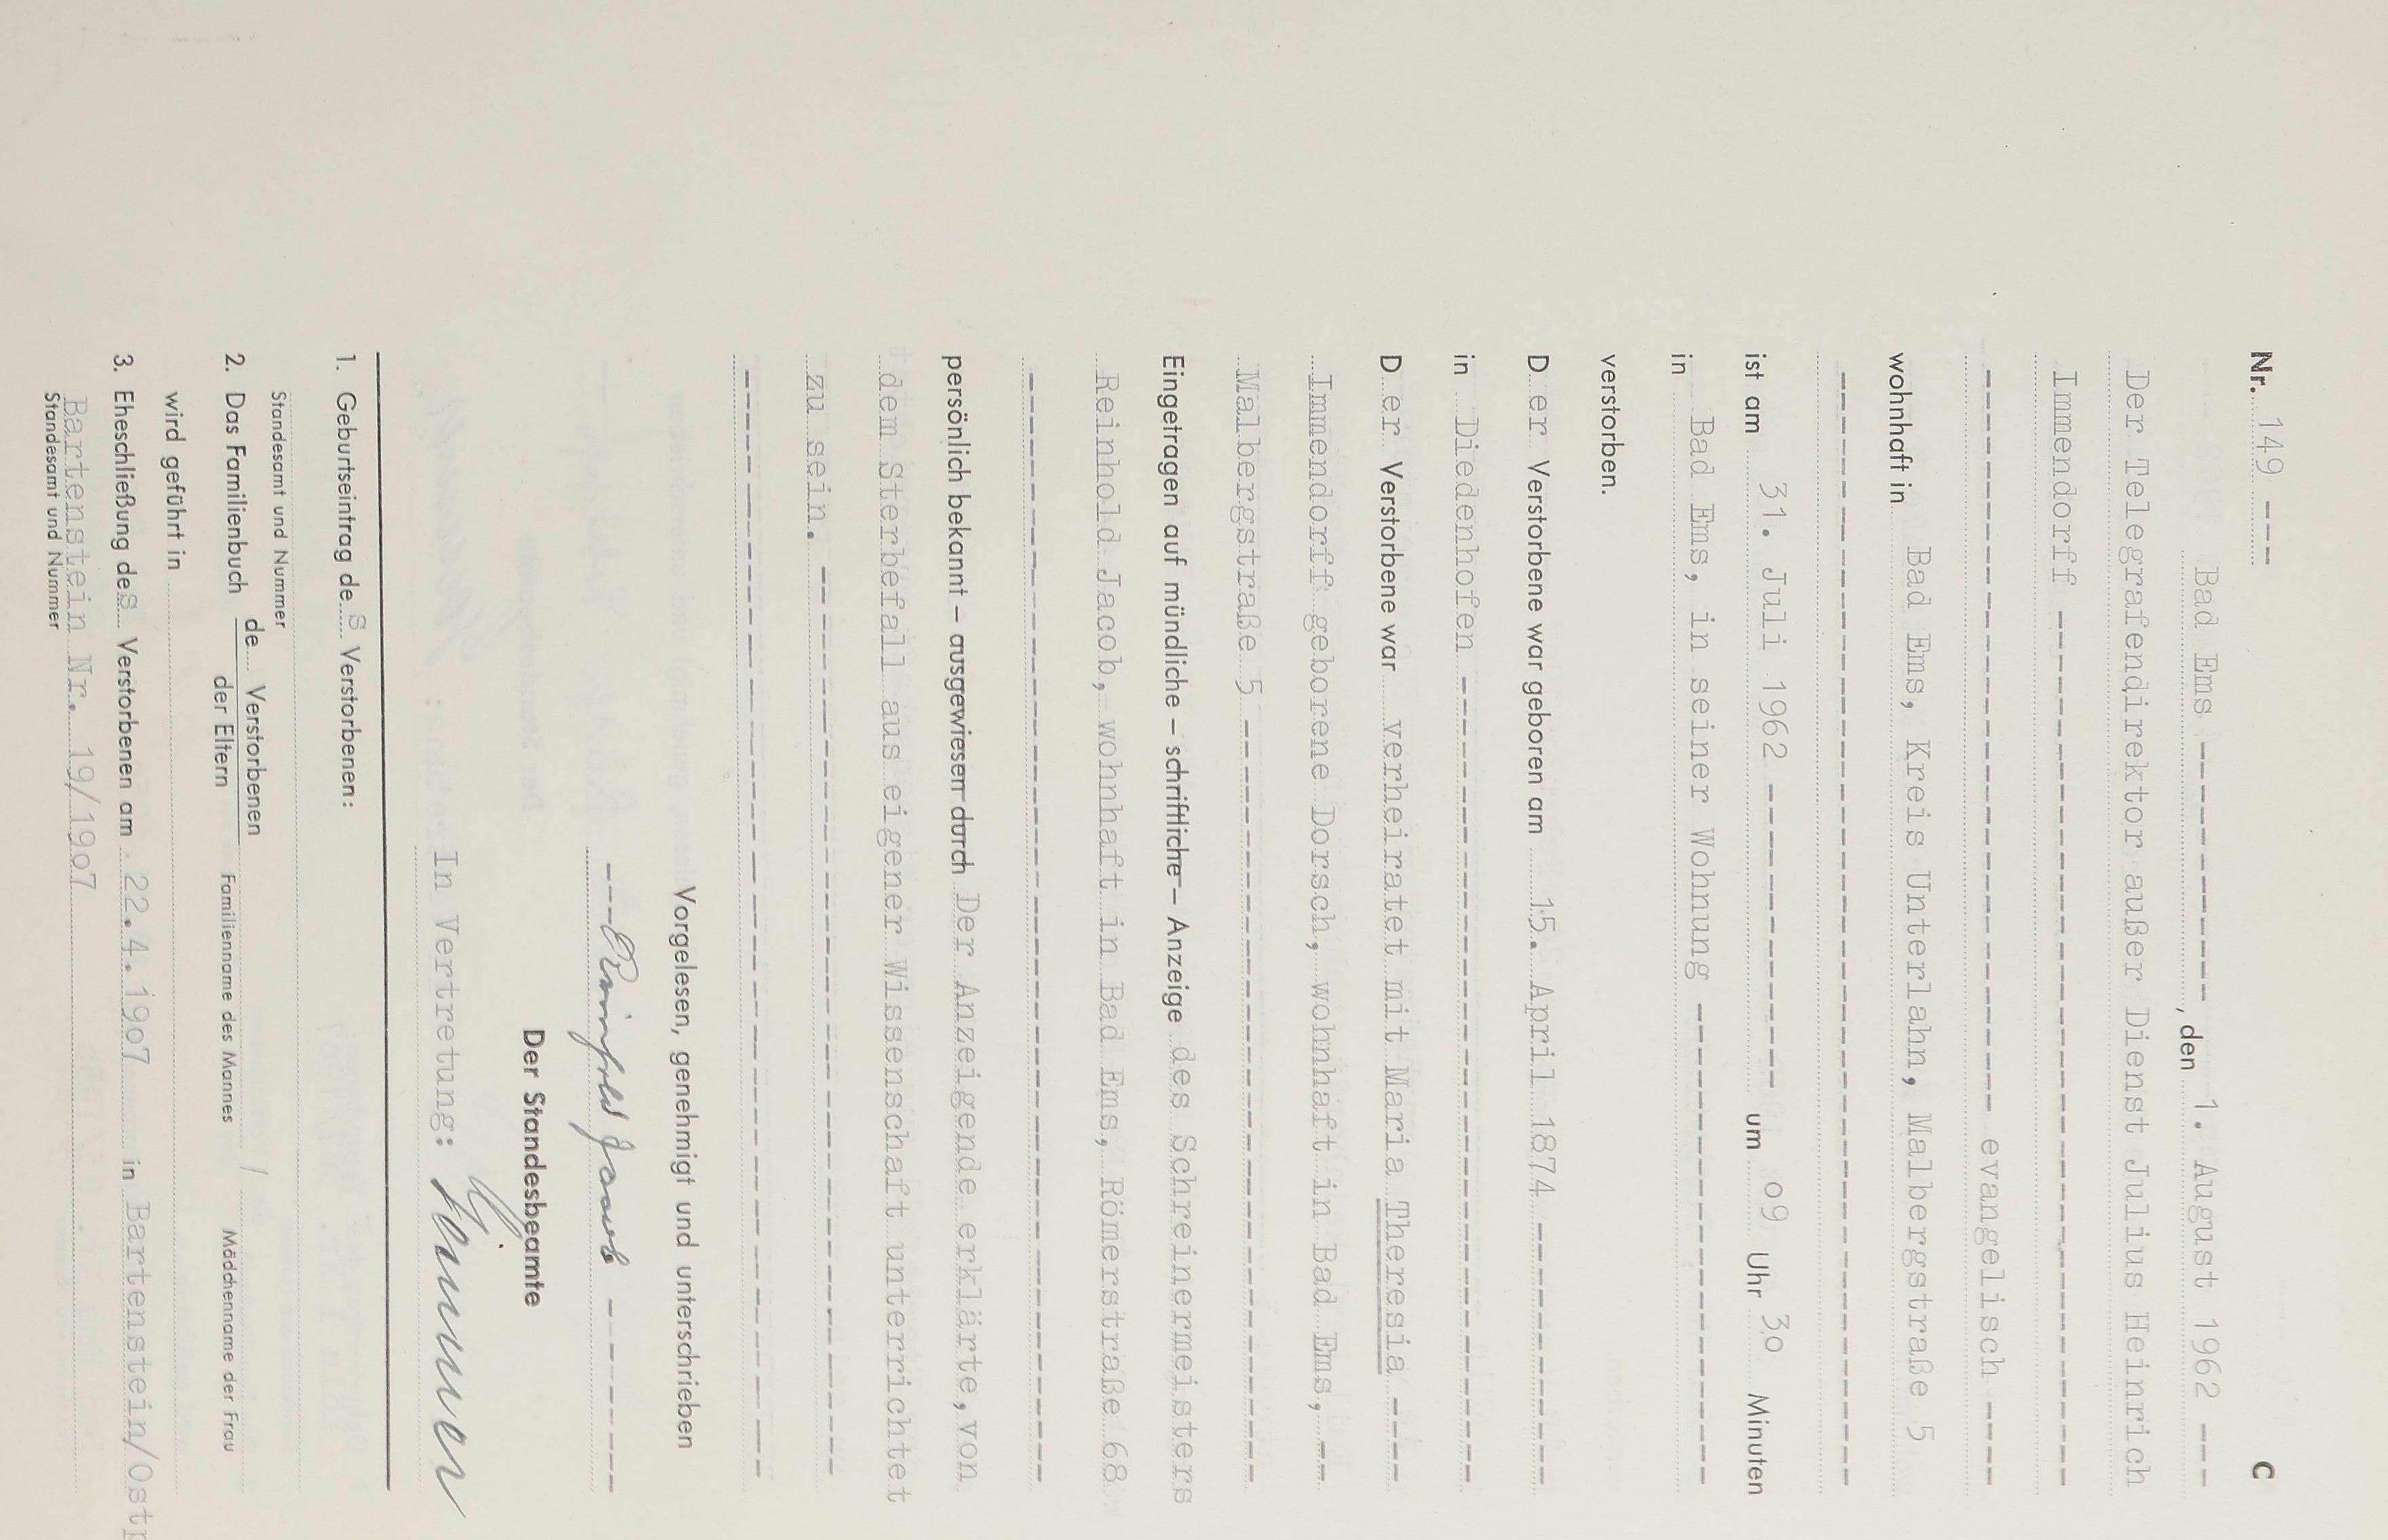 Nr. 149 --- C
Bad Ems -----------, den 1. August 1962 ---
Der Telegrafendirektor außer Dienst Julius Heinrich
Immendorff -------------------------------
------------------------------ evangelisch ----
wohnhaft in Bad Ems, Kreis Unterlahn, Malbergstraße 5
---------------------------------------------
ist am 31. Juli 1962 ------------- um 09 Uhr 30 Minuten
in Bad Ems, in seiner Wohnung ------------------
verstorben.
Der Verstorbene war geboren am 15. April 1874 -----------
in Diedenhofen --------------------------------
Der Verstorbene war verheiratet mit Maria Theresia ----
Immendorff geborene Dorsch, wohnhaft in Bad Ems, --
Malbergstraße 5 ------------------------------
Eingetragen auf mündliche – schriftliche – Anzeige des Schreinermeisters
Reinhold Jacob, wohnhaft in Bad Ems, Römerstraße 68
---------------------------------------------
persönlich bekannt – ausgewiesen durch Der Anzeigende erklärte, von
dem Sterbefall aus eigener Wissenschaft unterrichtet
zu sein. -------------------------------------
---------------------------------------------
Vorgelesen, genehmigt und unterschrieben
---Reinhold Jacob --------
Der Standesbeamte
In Vertretung:
1. Geburtseintrag des Verstorbenen:
Standesamt und Nummer
2. Das Familienbuch de Verstorbenen / der Eltern
Familienname des Mannes / Mädchenname der Frau
wird geführt in
3. Eheschließung des Verstorbenen am 22.4.1907 in Bartenstein/Ostp
Bartenstein Nr. 19/1907
Standesamt und Nummer